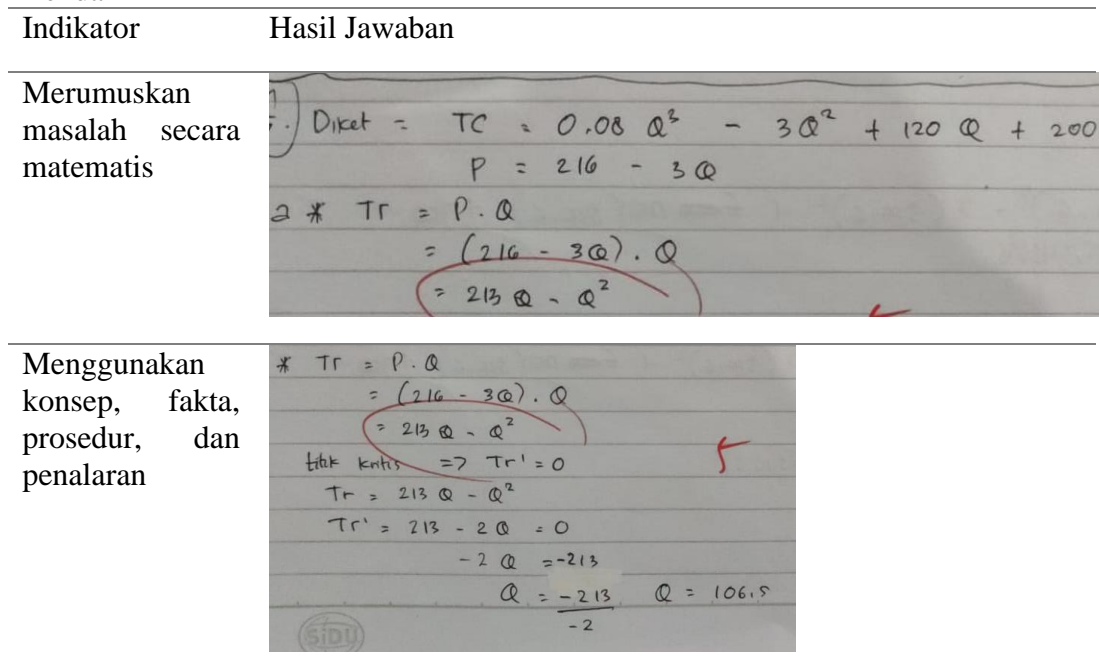 Indikator Hasil Jawaban
Merumuskan
masalah secara
matematis
Diket = TC = 0.08 Q³ - 3Q² + 120 Q + 200
P = 216 - 3Q
a * Tr = P . Q
= (216 - 3Q) . Q
= 213 Q - Q²
Menggunakan
konsep, fakta,
prosedur, dan
penalaran
* Tr = P . Q
= (216 - 3Q) . Q
= 213 Q - Q²
titik kritis => Tr' = 0
Tr = 213 Q - Q²
Tr' = 213 - 2Q = 0
-2 Q = -213
Q = -213 Q = 106,5
-2
SIDU